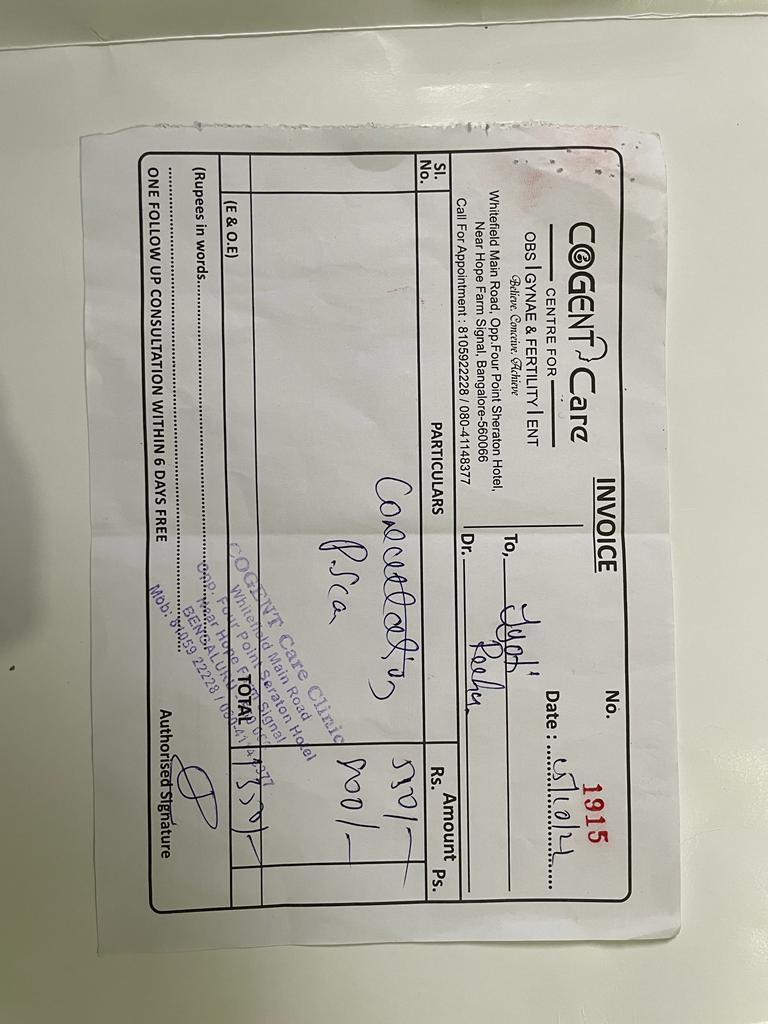 INVOICE
No.
1915
COGENT Care
CENTRE FOR
OBS | GYNAE & FERTILITY | ENT
Believe. Conceive. Achieve
Whitefield Main Road, Opp.Four Point Sheraton Hotel,
Near Hope Farm Signal, Bangalore-560066
Call For Appointment : 8105922228 / 080-41148377
Date : 15/10/21
To, Jyoti
Dr.
Sl. No.
PARTICULARS
Amount
Rs.
Ps.
Consultation 550/-
P.Scan 800/-
(E & O.E)
TOTAL 1350/-
(Rupees in words
ONE FOLLOW UP CONSULTATION WITHIN 6 DAYS FREE
Authorised Signature
COGENT Care Clinic
Whitefield Main Road
Opp. Four Point Seraton Hotel
Near Hope Farm Signal
BENGALURU
Mob: 81059 22228 / 080-41148377